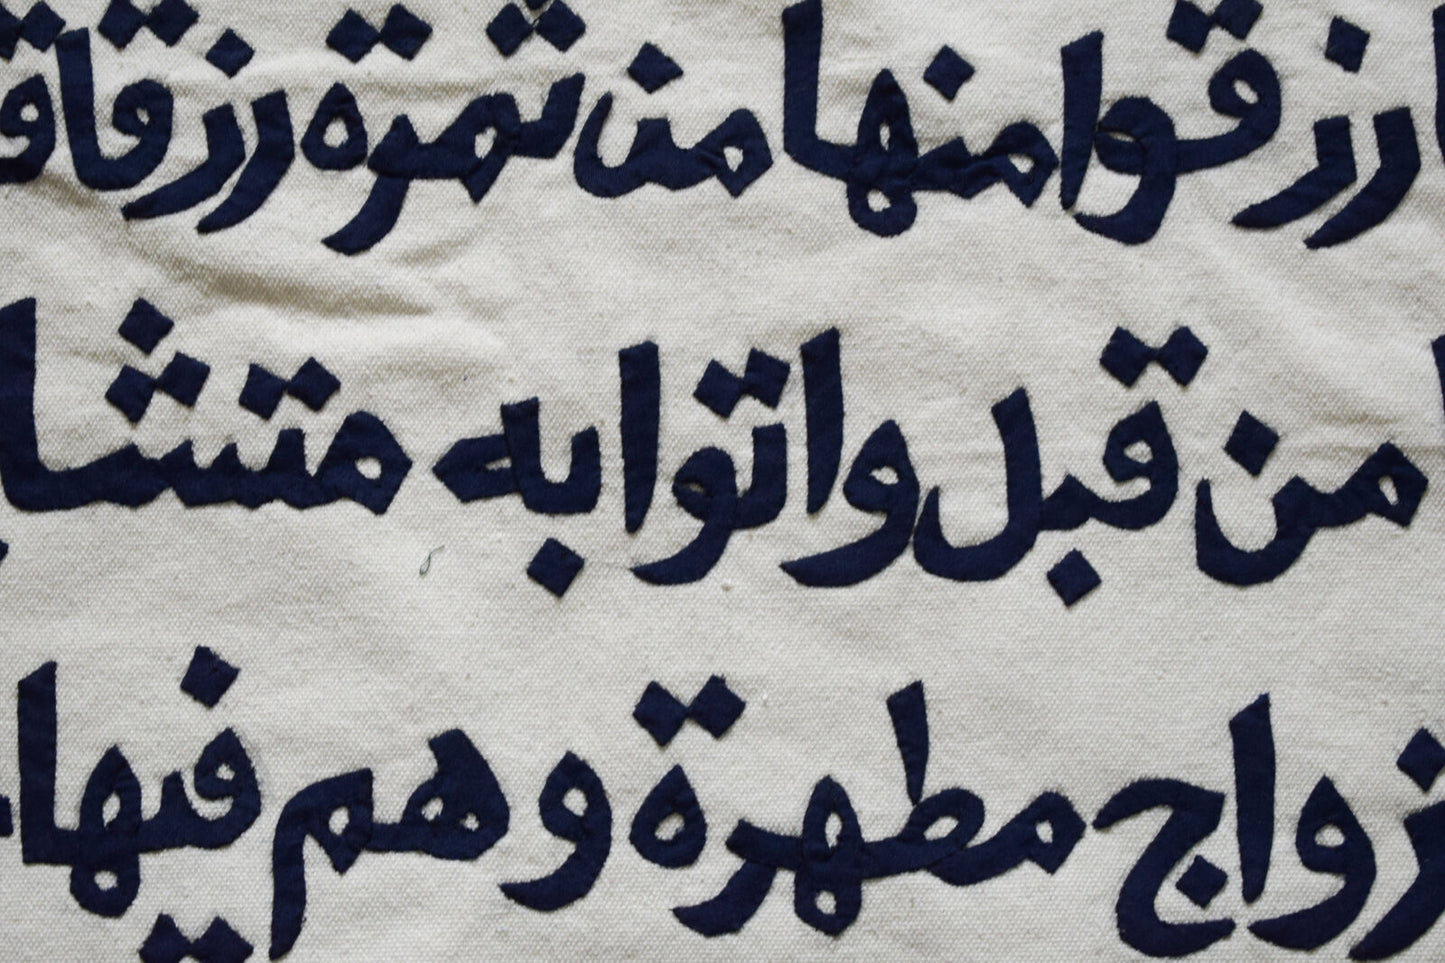 رزقوا منها من ثمرة رزقا ق
من قبل واتوا به متشا
زواج مطهرة وهم فيها